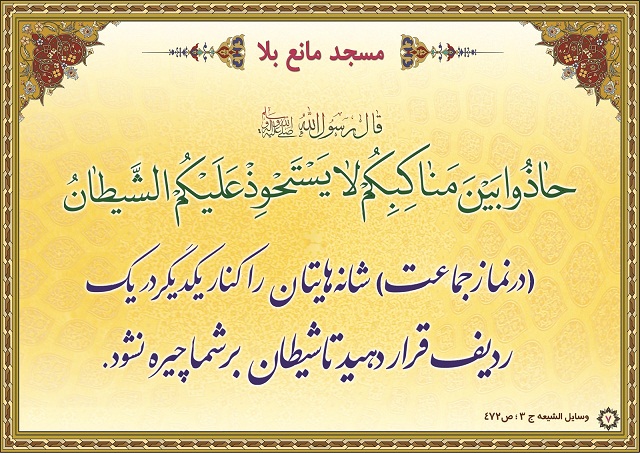 مسجد مانع بلا
قال رسول الله صلی الله علیه وآله
حاذُوا بَینَ مَناکِبِکُم لا یَستَحوِذْ عَلَیکُمُ الشَّیطانُ
(درنماز جماعت) شانه‌هایتان را کنار یکدیگر در یک
ردیف قرار دهید تا شیطان بر شما چیره نشود.
۷ وسایل الشیعه ج ۳ : ص ۴۷۲